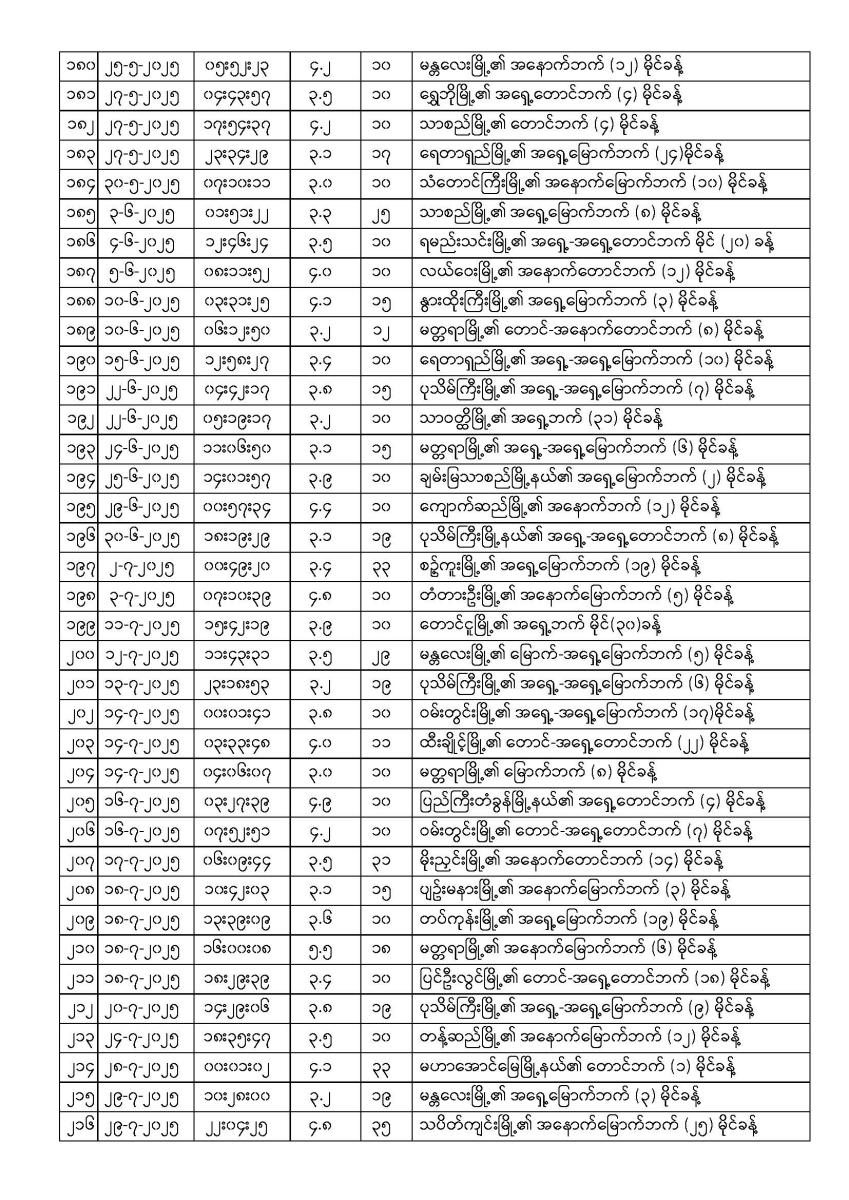 ၁၈၀ ၂၅-၅-၂၀၂၅ ၀၅း၅၂း၂၃ ၄.၂ ၁၀ မန္တလေးမြို့၏ အနောက်ဘက် (၁၂) မိုင်ခန့်
၁၈၁ ၂၇-၅-၂၀၂၅ ၀၄း၄၃း၅၇ ၃.၅ ၁၀ ရွှေဘိုမြို့၏ အရှေ့တောင်ဘက် (၄) မိုင်ခန့်
၁၈၂ ၂၇-၅-၂၀၂၅ ၁၇း၅၄း၃၇ ၄.၂ ၁၀ သာစည်မြို့၏ တောင်ဘက် (၄) မိုင်ခန့်
၁၈၃ ၂၇-၅-၂၀၂၅ ၂၃း၃၄း၂၉ ၃.၁ ၁၇ ရေတာရှည်မြို့၏ အရှေ့မြောက်ဘက် (၂၄)မိုင်ခန့်
၁၈၄ ၃၀-၅-၂၀၂၅ ၀၇း၁၀း၁၁ ၃.၀ ၁၀ သံတောင်ကြီးမြို့၏ အနောက်မြောက်ဘက် (၁၀) မိုင်ခန့်
၁၈၅ ၃-၆-၂၀၂၅ ၀၁း၅၁း၂၂ ၃.၃ ၂၅ သာစည်မြို့၏ အရှေ့မြောက်ဘက် (၈) မိုင်ခန့်
၁၈၆ ၄-၆-၂၀၂၅ ၁၂း၄၆း၂၄ ၃.၅ ၁၀ ရမည်းသင်းမြို့၏ အရှေ့-အရှေ့တောင်ဘက် မိုင် (၂၀) ခန့်
၁၈၇ ၅-၆-၂၀၂၅ ၀၈း၁၁း၅၂ ၄.၀ ၁၀ လယ်ဝေးမြို့၏ အနောက်တောင်ဘက် (၁၂) မိုင်ခန့်
၁၈၈ ၁၀-၆-၂၀၂၅ ၀၃း၃၁း၂၅ ၄.၁ ၁၅ နွားထိုးကြီးမြို့၏ အရှေ့မြောက်ဘက် (၃) မိုင်ခန့်
၁၈၉ ၁၀-၆-၂၀၂၅ ၀၆း၁၂း၅၀ ၃.၂ ၁၂ မတ္တရာမြို့၏ တောင်-အနောက်တောင်ဘက် (၈) မိုင်ခန့်
၁၉၀ ၁၅-၆-၂၀၂၅ ၁၂း၅၈း၂၇ ၃.၄ ၁၀ ရေတာရှည်မြို့၏ အရှေ့-အရှေ့မြောက်ဘက် (၁၀) မိုင်ခန့်
၁၉၁ ၂၂-၆-၂၀၂၅ ၀၄း၄၂း၁၇ ၃.၈ ၁၅ ပုသိမ်ကြီးမြို့၏ အရှေ့-အရှေ့မြောက်ဘက် (၇) မိုင်ခန့်
၁၉၂ ၂၂-၆-၂၀၂၅ ၀၅း၁၉း၁၇ ၃.၂ ၁၀ သာဝတ္ထိမြို့၏ အရှေ့ဘက် (၃၁) မိုင်ခန့်
၁၉၃ ၂၄-၆-၂၀၂၅ ၁၁း၀၆း၅၀ ၃.၁ ၁၅ မတ္တရာမြို့၏ အရှေ့-အရှေ့မြောက်ဘက် (၆) မိုင်ခန့်
၁၉၄ ၂၅-၆-၂၀၂၅ ၁၄း၀၁း၅၇ ၃.၉ ၁၀ ချမ်းမြသာစည်မြို့နယ်၏ အရှေ့မြောက်ဘက် (၂) မိုင်ခန့်
၁၉၅ ၂၉-၆-၂၀၂၅ ၀၀း၅၇း၃၄ ၄.၄ ၁၀ ကျောက်ဆည်မြို့၏ အနောက်ဘက် (၁၂) မိုင်ခန့်
၁၉၆ ၃၀-၆-၂၀၂၅ ၁၈း၁၉း၂၉ ၃.၁ ၁၉ ပုသိမ်ကြီးမြို့နယ်၏ အရှေ့-အရှေ့တောင်ဘက် (၈) မိုင်ခန့်
၁၉၇ ၂-၇-၂၀၂၅ ၀၀း၄၉း၂၀ ၃.၄ ၃၃ စဉ့်ကူးမြို့၏ အရှေ့မြောက်ဘက် (၁၉) မိုင်ခန့်
၁၉၈ ၃-၇-၂၀၂၅ ၀၇း၁၀း၃၉ ၄.၈ ၁၀ တံတားဦးမြို့၏ အနောက်မြောက်ဘက် (၅) မိုင်ခန့်
၁၉၉ ၁၁-၇-၂၀၂၅ ၁၅း၄၂း၁၉ ၃.၉ ၁၀ တောင်ငူမြို့၏ အရှေ့ဘက် မိုင်(၃၀)ခန့်
၂၀၀ ၁၂-၇-၂၀၂၅ ၁၁း၄၃း၃၁ ၃.၅ ၂၉ မန္တလေးမြို့၏ မြောက်-အရှေ့မြောက်ဘက် (၅) မိုင်ခန့်
၂၀၁ ၁၃-၇-၂၀၂၅ ၂၃း၁၈း၅၃ ၃.၂ ၁၉ ပုသိမ်ကြီးမြို့၏ အရှေ့-အရှေ့မြောက်ဘက် (၆) မိုင်ခန့်
၂၀၂ ၁၄-၇-၂၀၂၅ ၀၀း၀၁း၄၁ ၃.၈ ၁၀ ဝမ်းတွင်းမြို့၏ အရှေ့-အရှေ့မြောက်ဘက် (၁၇)မိုင်ခန့်
၂၀၃ ၁၄-၇-၂၀၂၅ ၀၃း၃၃း၄၈ ၄.၀ ၁၁ ထီးချိုင့်မြို့၏ တောင်-အရှေ့တောင်ဘက် (၂၂) မိုင်ခန့်
၂၀၄ ၁၄-၇-၂၀၂၅ ၀၄း၀၆း၀၇ ၃.၀ ၁၀ မတ္တရာမြို့၏ မြောက်ဘက် (၈) မိုင်ခန့်
၂၀၅ ၁၆-၇-၂၀၂၅ ၀၃း၂၇း၃၉ ၄.၉ ၁၀ ပြည်ကြီးတံခွန်မြို့နယ်၏ အရှေ့တောင်ဘက် (၄) မိုင်ခန့်
၂၀၆ ၁၆-၇-၂၀၂၅ ၀၇း၅၂း၅၁ ၄.၂ ၁၀ ဝမ်းတွင်းမြို့၏ တောင်-အရှေ့တောင်ဘက် (၇) မိုင်ခန့်
၂၀၇ ၁၇-၇-၂၀၂၅ ၀၆း၀၉း၄၄ ၃.၅ ၃၁ မိုးညှင်းမြို့၏ အနောက်တောင်ဘက် (၁၄) မိုင်ခန့်
၂၀၈ ၁၈-၇-၂၀၂၅ ၁၀း၄၂း၀၃ ၃.၁ ၁၅ ပျဉ်းမနားမြို့၏ အနောက်မြောက်ဘက် (၃) မိုင်ခန့်
၂၀၉ ၁၈-၇-၂၀၂၅ ၁၃း၃၉း၀၉ ၃.၆ ၁၀ တပ်ကုန်းမြို့၏ အရှေ့မြောက်ဘက် (၁၉) မိုင်ခန့်
၂၁၀ ၁၈-၇-၂၀၂၅ ၁၆း၀၀း၀၈ ၅.၅ ၁၈ မတ္တရာမြို့၏ အနောက်မြောက်ဘက် (၆) မိုင်ခန့်
၂၁၁ ၁၈-၇-၂၀၂၅ ၁၈း၂၉း၃၉ ၃.၄ ၁၀ ပြင်ဦးလွင်မြို့၏ တောင်-အရှေ့တောင်ဘက် (၁၈) မိုင်ခန့်
၂၁၂ ၂၀-၇-၂၀၂၅ ၁၄း၂၉း၀၆ ၃.၈ ၁၉ ပုသိမ်ကြီးမြို့၏ အရှေ့-အရှေ့မြောက်ဘက် (၉) မိုင်ခန့်
၂၁၃ ၂၄-၇-၂၀၂၅ ၁၈း၃၅း၄၇ ၃.၅ ၁၀ တန့်ဆည်မြို့၏ အနောက်မြောက်ဘက် (၁၂) မိုင်ခန့်
၂၁၄ ၂၈-၇-၂၀၂၅ ၀၀း၀၁း၀၂ ၄.၁ ၃၃ မဟာအောင်မြေမြို့နယ်၏ တောင်ဘက် (၁) မိုင်ခန့်
၂၁၅ ၂၉-၇-၂၀၂၅ ၁၀း၂၈း၀၀ ၃.၂ ၁၉ မန္တလေးမြို့၏ အရှေ့မြောက်ဘက် (၃) မိုင်ခန့်
၂၁၆ ၂၉-၇-၂၀၂၅ ၂၂း၀၄း၂၅ ၄.၈ ၃၅ သပိတ်ကျင်းမြို့၏ အနောက်မြောက်ဘက် (၂၅) မိုင်ခန့်